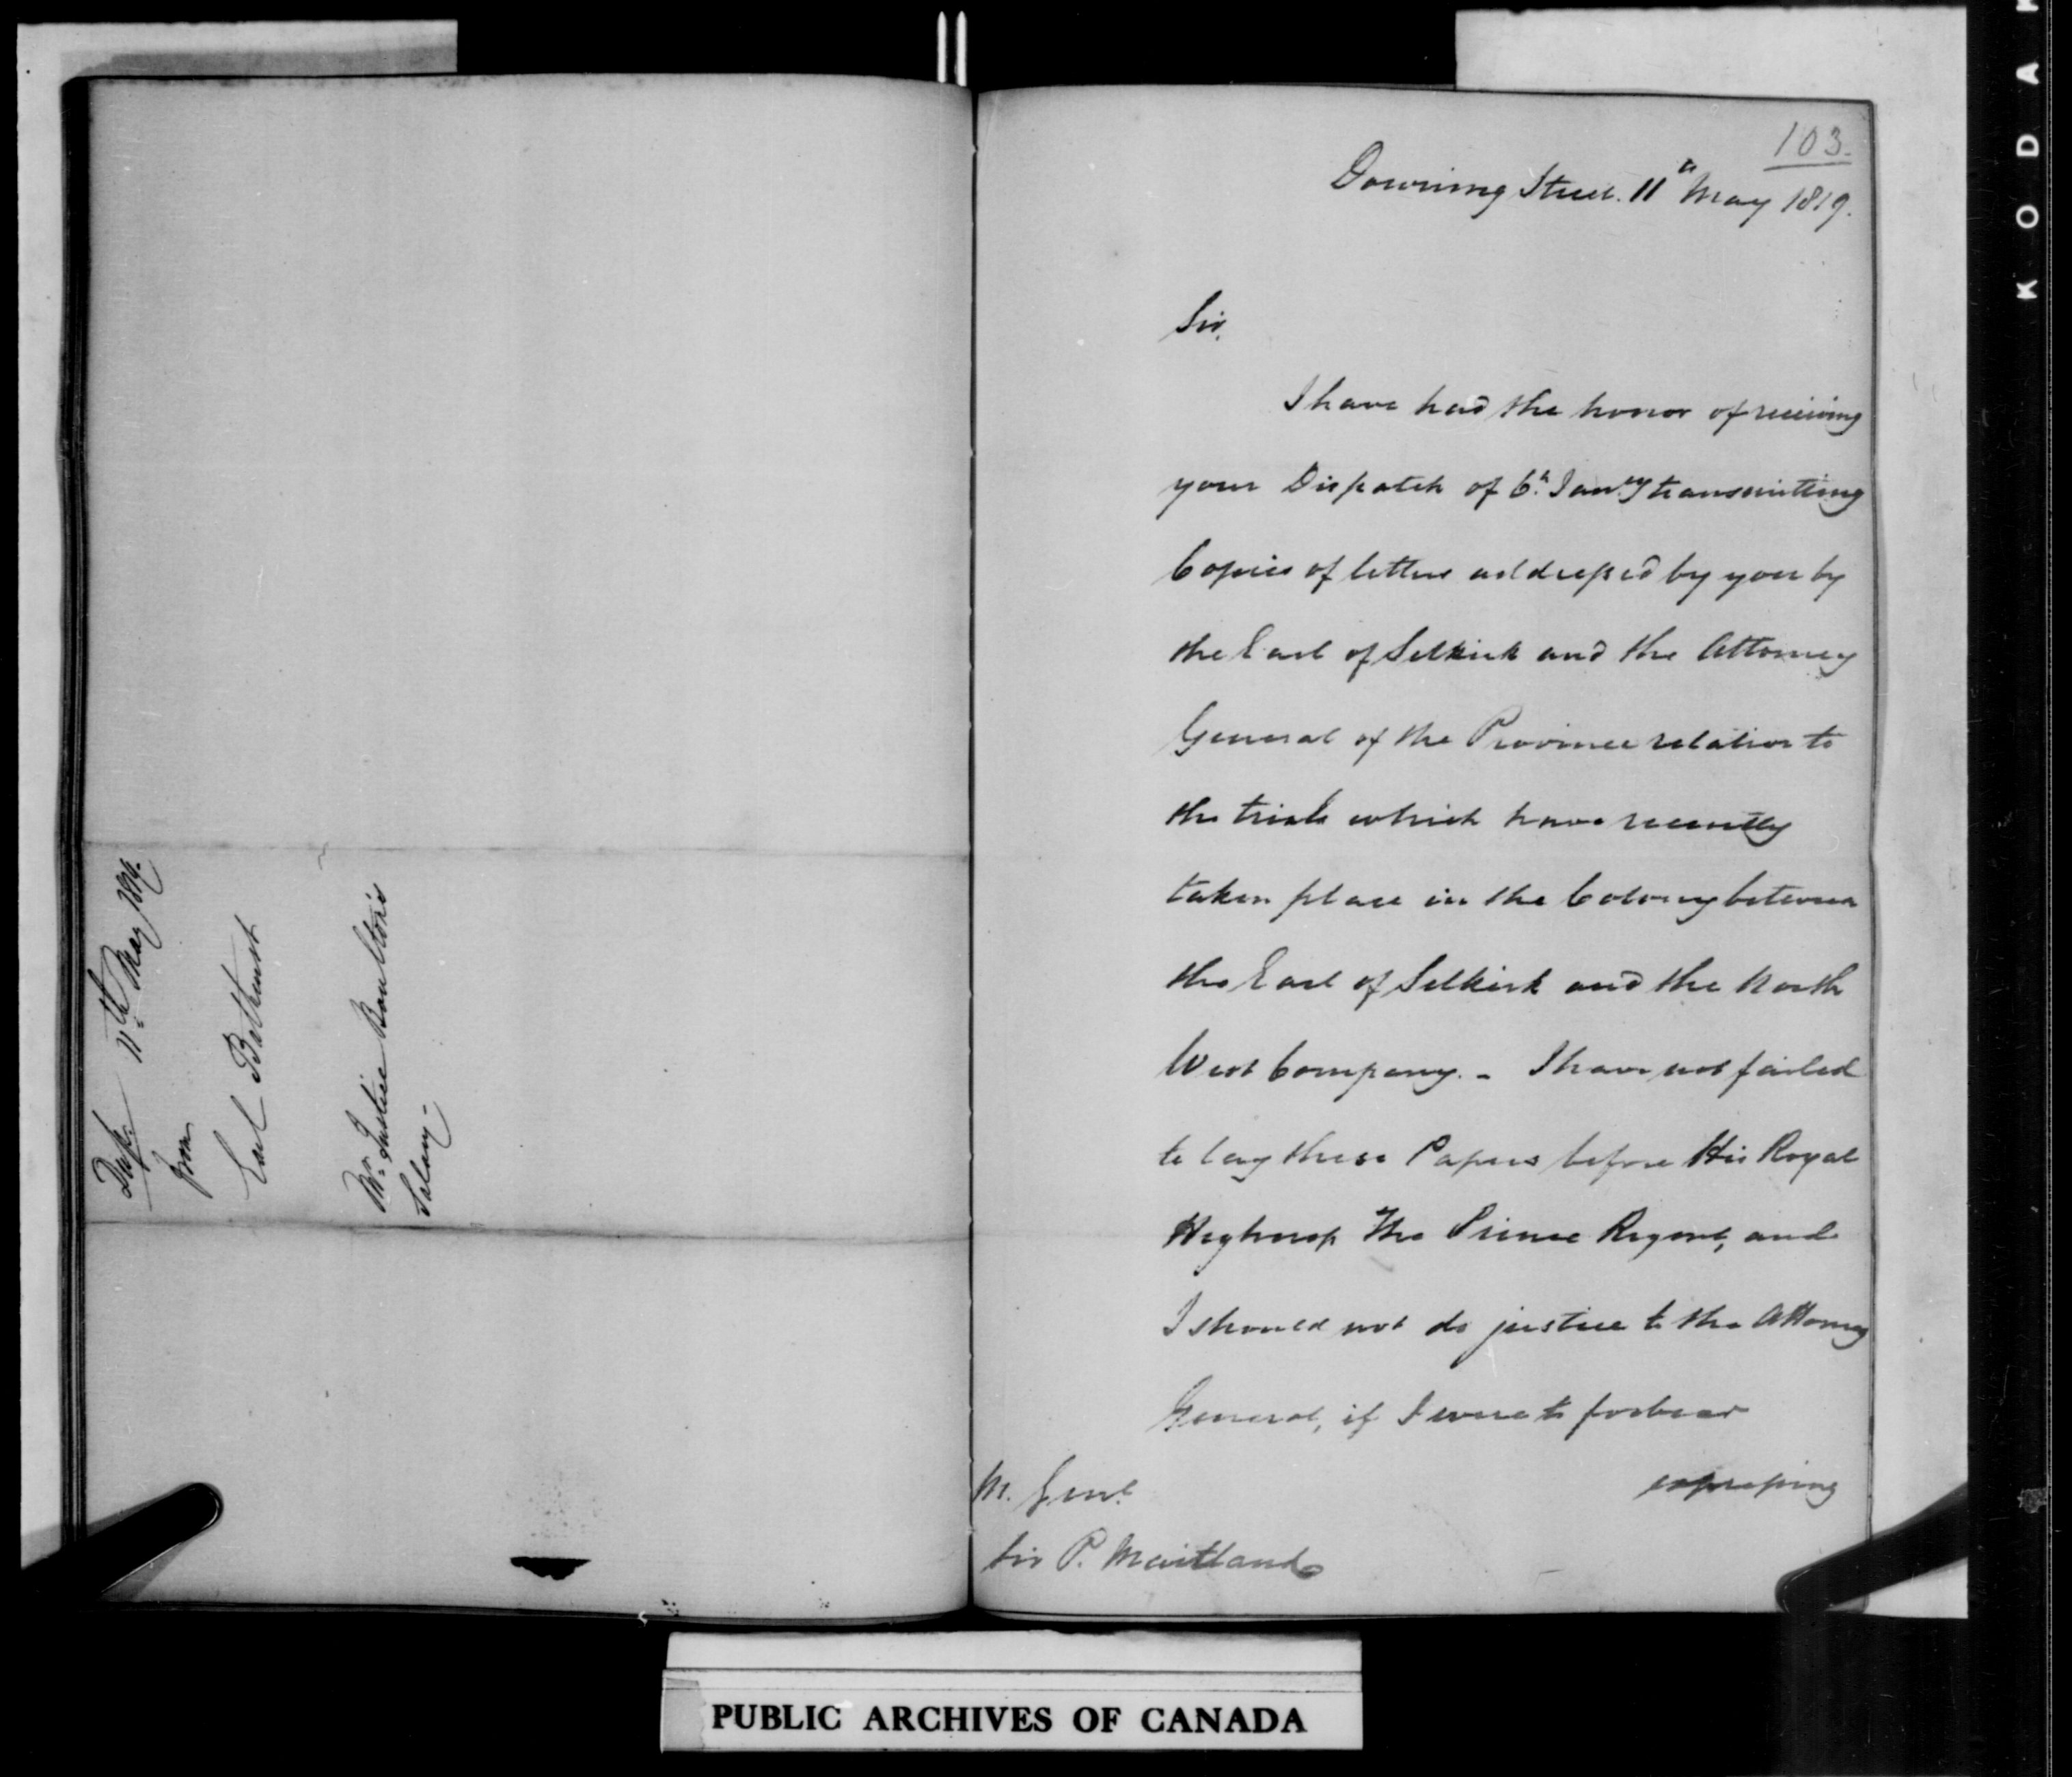 Disp.
11th May 1819.
from
Earl Bathurst
Mr. Justice Boulton's
Salary.
103.
Downing Street. 11th May 1819.
Sir,
I have had the honor of receiving
your Dispatch of 6th Jan.ry transmitting
Copies of letters addressed by you by
the Earl of Selkirk and the Attorney
General of the Province relative to
the trials which have recently
taken place in the Colony between
the Earl of Selkirk and the North
West Company. - I have not failed
to lay these Papers before His Royal
Highness The Prince Regent, and
I should not do justice to the Attorney
General, if I were to forbear
expressing
M. Genl.
Sir P. Maitland
PUBLIC ARCHIVES OF CANADA
KODAK